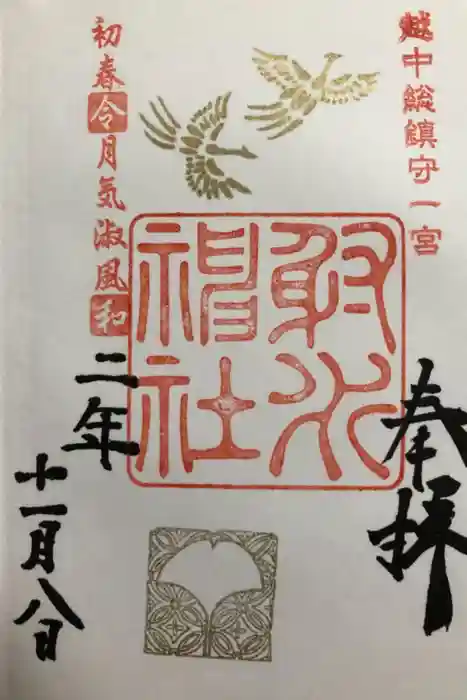 越中総鎮守一宮
奉拝
射水
神社
初春令月気淑風和
二年
十一月八日